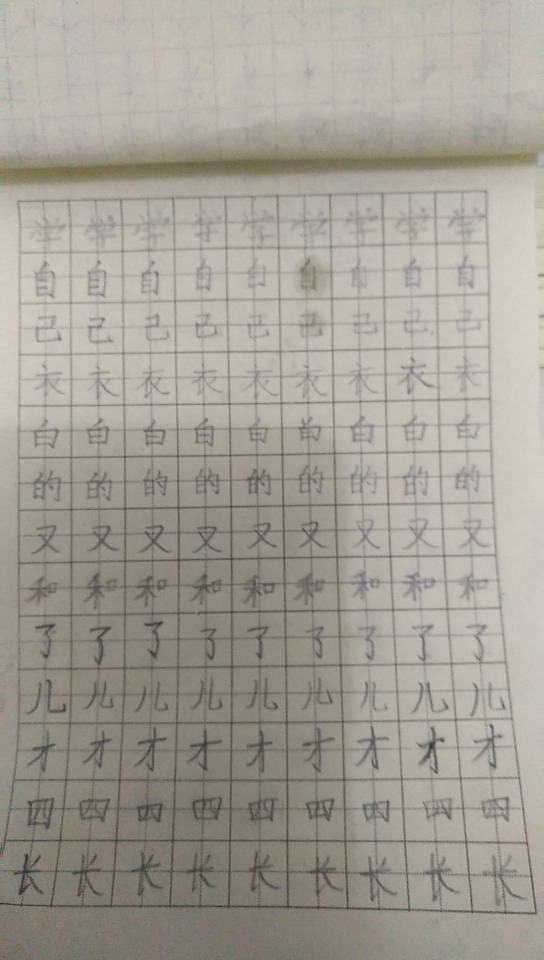 学学学学学学学学学
自自自自自自自自自
己己己己己己己己己
衣衣衣衣衣衣衣衣衣
白白白白白白白白白
的的的的的的的的的
又又又又又又又又又
和和和和和和和和和
了了了了了了了了了
儿儿儿儿儿儿儿儿儿
才才才才才才才才才
四四四四四四四四四
长长长长长长长长长